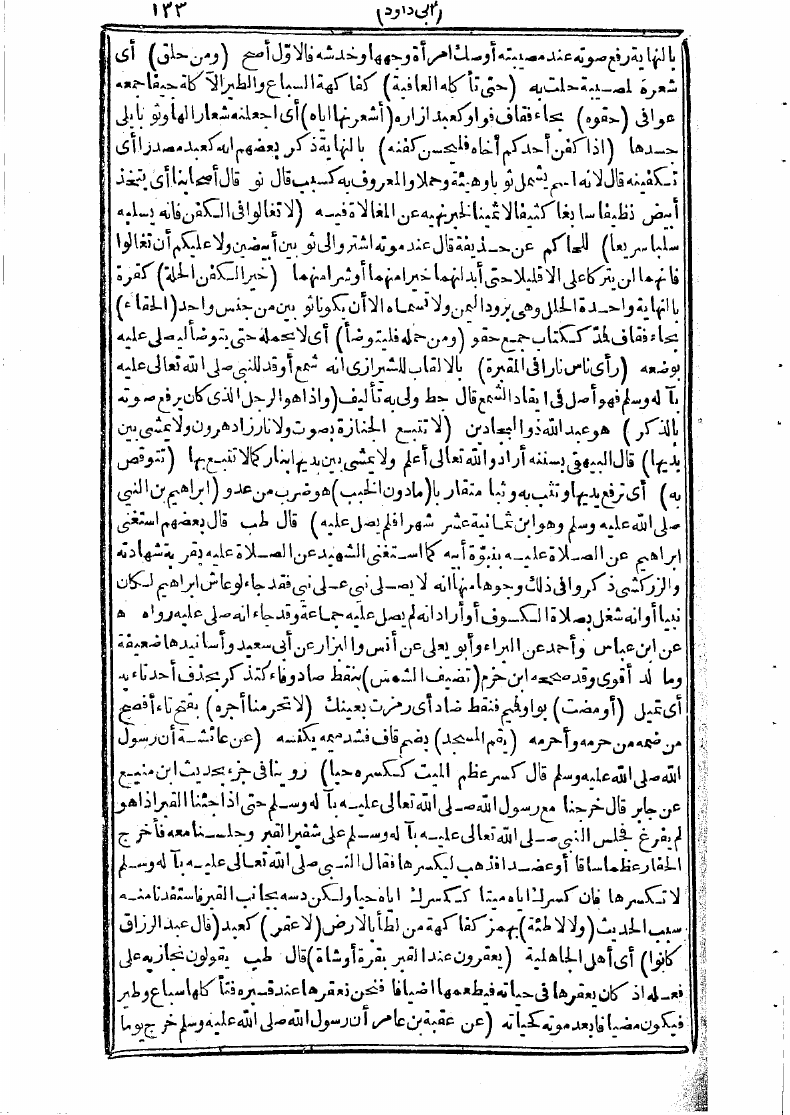 ١٣٣ (أبى داود)
بالنهاية رفع صوته عند مصيبته أو صك امرأة وجهها وخدشه فالاوّل أصح (ومن حلق) أى
شعره لمصيبة حلت به (حتى تأكله العافية) كفاكهة السباع والطير الآكلة جيفا جمعه
عوافى (حقوه) بحاء فقاف فواو كعبد ازاره (أشعرنها اياه) أى اجعلنه شعارا لها وثوبا يلى
جسدها (اذا كفن أحدكم أخاه فليحسن كفنه) بالنهاية ذكر بعضهم انه كعبد مصدرا أى
تكفينه قال لانه اعم يشمل ثوبا وهيئة وعملا والمعروف به كسبب قال نو قال أصحابنا أى يتخذ
أبيض نظيفا سابغا كثيفا لا ثمينا لخبر نهيه عن المغالاة فيه (لا تغالوا فى الكفن فانه يسلبه
سلبا سريعا) للحاكم عن حذيفة قال عند موته اشتروا لى ثوبين أبيضين ولا عليكم أن تغالوا
فانهما لن يتركا على الا قليلا حتى أبدلهما خيرا منهما أو شرا منهما (خير الكفن الحلة) كقرة
بالنهاية واحدة الحلل وهى برود اليمن ولا تسمى حلة الا أن يكونا ثوبين من جنس واحد (الحقاء)
بحاء فقاف لمد ككتاب جمع حقو (ومن حمله فليتوضأ) أى لا يحمله حتى يتوضأ ليصلى عليه
بوضعه (رأى ناس نارا فى المقبرة) بالالقاب للشيرازى انه شمع أوقد للنبى صلى الله تعالى عليه
بآله وسلم فهو أصل فى ايقاد الشمع قال حط ولى به تأليف (واذا هو الرجل الذى كان يرفع صوته
بالذكر) هو عبد الله ذو البجادين (لا تتبع الجنازة بصوت ولا نار زاد هرون ولا يمشى بين
يديها) قال البيهقى بسننه أراد والله تعالى أعلم ولا يمشى بين يديها بنار كما لا تتبع بها (تتوقص
به) أى ترفع يديها وتثب به وثبا متقاربا (ما دون الخبب) هو ضرب من عدو (ابراهيم بن النبى
صلى الله عليه وسلم وهو ابن ثمانية عشر شهرا فلم يصل عليه) قال طب قال بعضهم استغنى
ابراهيم عن الصلاة عليه بنبوّة أبيه كما استغنى الشهيد عن الصلاة عليه بقربة شهادته
والزركشى ذكروا فى ذلك وجوها منها انه لا يصلى نبى على نبى فقد جاء لو عاش ابراهيم لكان
نبيا أو انه شغل بصلاة الكسوف أو أراد انه لم يصل عليه جماعة وقد جاء انه صلى عليه رواه ه
عن ابن عباس وأحمد عن البراء وأبو يعلى عن أنس والبزار عن أبى سعيد وأسانيدها ضعيفة
وما لد أقوى وقد صححه ابن حزم (تضيف الشمس) بنقط صاد وفاء كتذكر بحذف أحد تاءيه
أى تميل (أومضت) بواو فميم فنقط ضاد أى رمزت بعينك (لا تحرمنا أجره) بفتح تاء أفصح
من ضمه من حرمه وأحرمه (يقم المسجد) بضم قاف فشد ميمه يكنسه (عن عائشة أن رسول
الله صلى الله عليه وسلم قال كسر عظم الميت ككسره حيا) روينا فى جزء بحديث ابن منيع
عن جابر قال خرجنا مع رسول الله صلى الله تعالى عليه بآله وسلم حتى اذا جئنا القبر اذا هو
لم يفرغ فجلس النبى صلى الله تعالى عليه بآله وسلم على شفير القبر وجلسنا معه فأخرج
الحفار عظما ساقا أو عضدا فذهب ليكسرها فقال النبى صلى الله تعالى عليه بآله وسلم
لا تكسرها فان كسرك اياه ميتا ككسرك اياه حيا ولكن دسه بجانب القبر فاستفدنا منه
سبب الحديث (ولا لاطئة) بهمز كفاكهة من لطأ بالارض (لا عقر) كعبد (قال عبد الرزاق
كانوا) أى أهل الجاهلية (يعقرون عند القبر بقرة أو شاة) قال طب يقولون نجازيه على
فعله اذ كان يعقرها فى حياته فيطعمها اضيافا فنحن نعقرها عند قبره فتأكلها سباع وطير
فيكون مضيافا بعد موته كحياته (عن عقبة بن عامر أن رسول الله صلى الله عليه وسلم خرج يوما